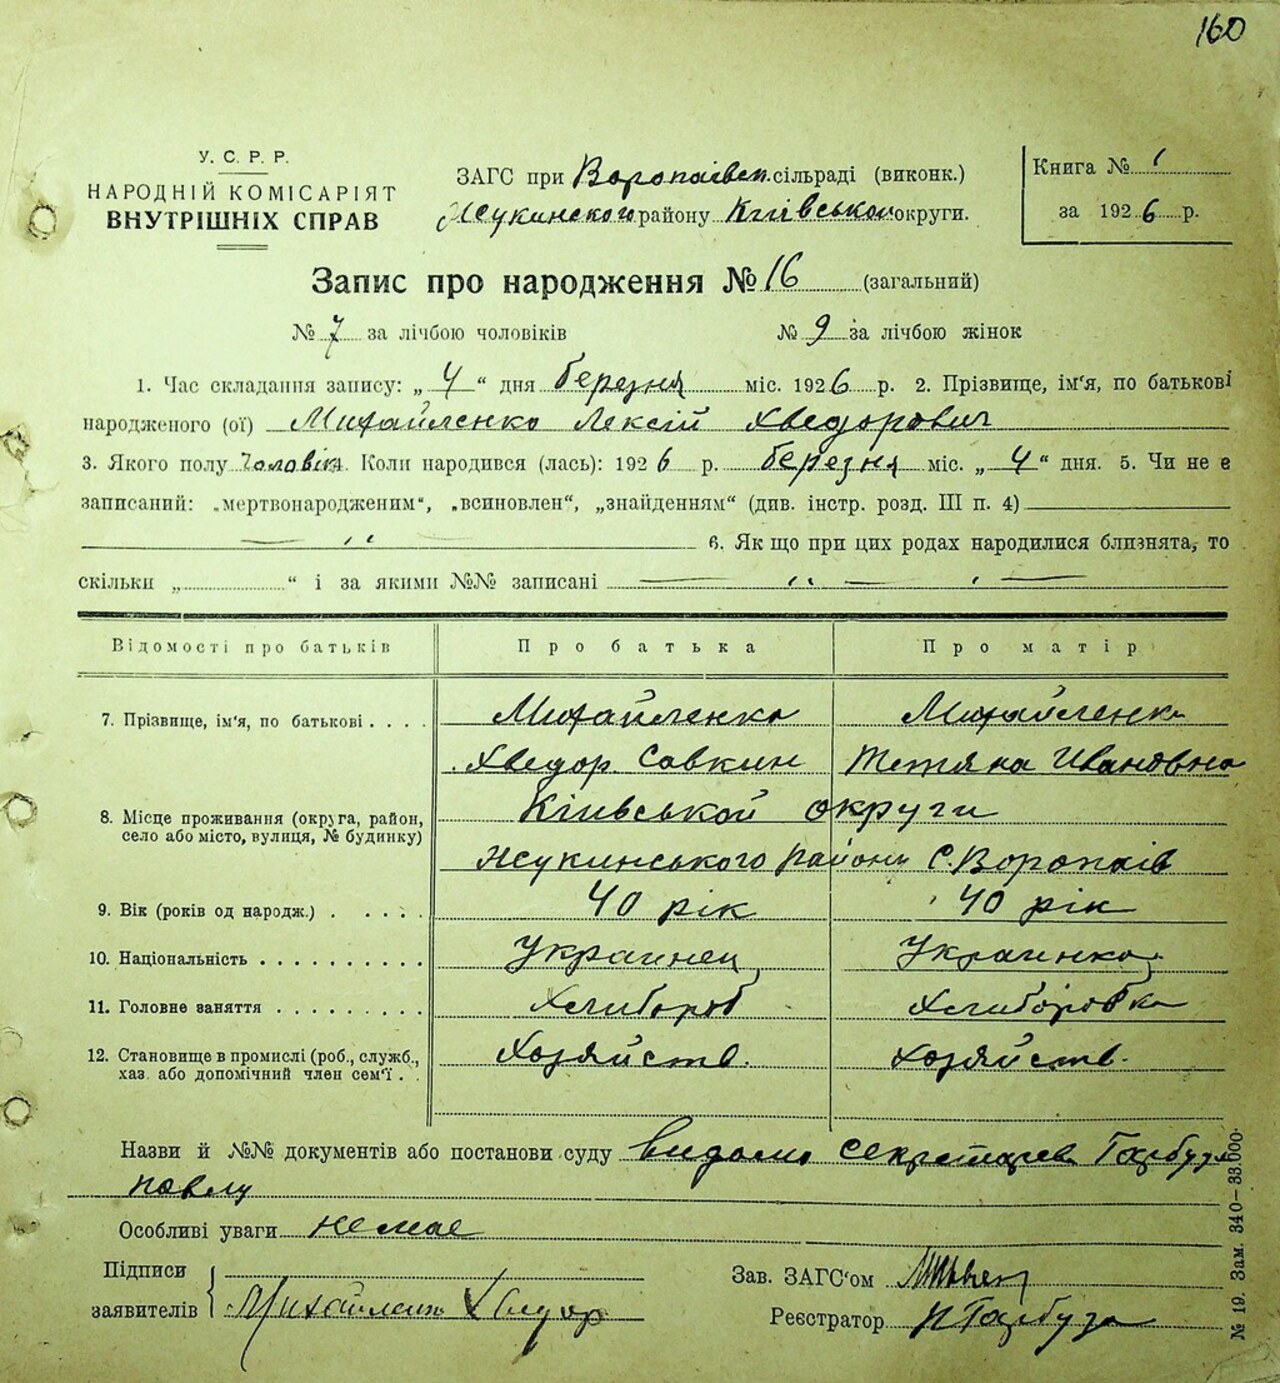 160
У. С. Р. Р.
НАРОДНІЙ КОМІСАРІЯТ
ВНУТРІШНІХ СПРАВ
ЗАГС при Воропаівск. сільраді (виконк.)
Жукинского району Київськои округи.
Книга № 1
за 1926 р.
Запис про народження № 16 (загальний)
№ 7 за лічбою чоловіків № 9 за лічбою жінок
1. Час складання запису: „ 4 “ дня березня міс. 1926 р. 2. Прізвище, ім‘я, по батькові
народженого (ої) Михайленко Лексій Хведорович
3. Якого полу Чоловік. Коли народився (лась): 1926 р. березня міс. „ 4 “ дня. 5. Чи не є
записаний: „мертвонародженим“, „всиновлен“, „знайденням“ (див. інстр. розд. III п. 4)
6. Як що при цих родах народилися близнята, то
скільки „ “ і за якими №№ записані
Відомості про батьків Про батька Про матір
7. Прізвище, ім‘я, по батькові . . . . Михайленко Михайленко
Хведор Савкин Тетяна Ивановна
8. Місце проживання (округа, район, село або місто, вулиця, № будинку) Київськой округи
Жукинського району С. Воропаів
9. Вік (років од народж.) . . . . . 40 рік 40 рік
10. Національність . . . . . . . . . . Украинец Украинка
11. Головне заняття . . . . . . . . . Хлибороб Хлиборобка
12. Становище в промислі (роб., служб., хаз. або допомічний член сем‘ї . . Хозяйств. Хозяйств.
Назви й №№ документів або постанови суду видомо секретарев Гарбуз
павлу
Особливі уваги немае
Підписи
заявителів Михайленко Хведор
Зав. ЗАГС‘ом
Реєстратор ПГарбуза
№ 19. Зам. 340–33.000.